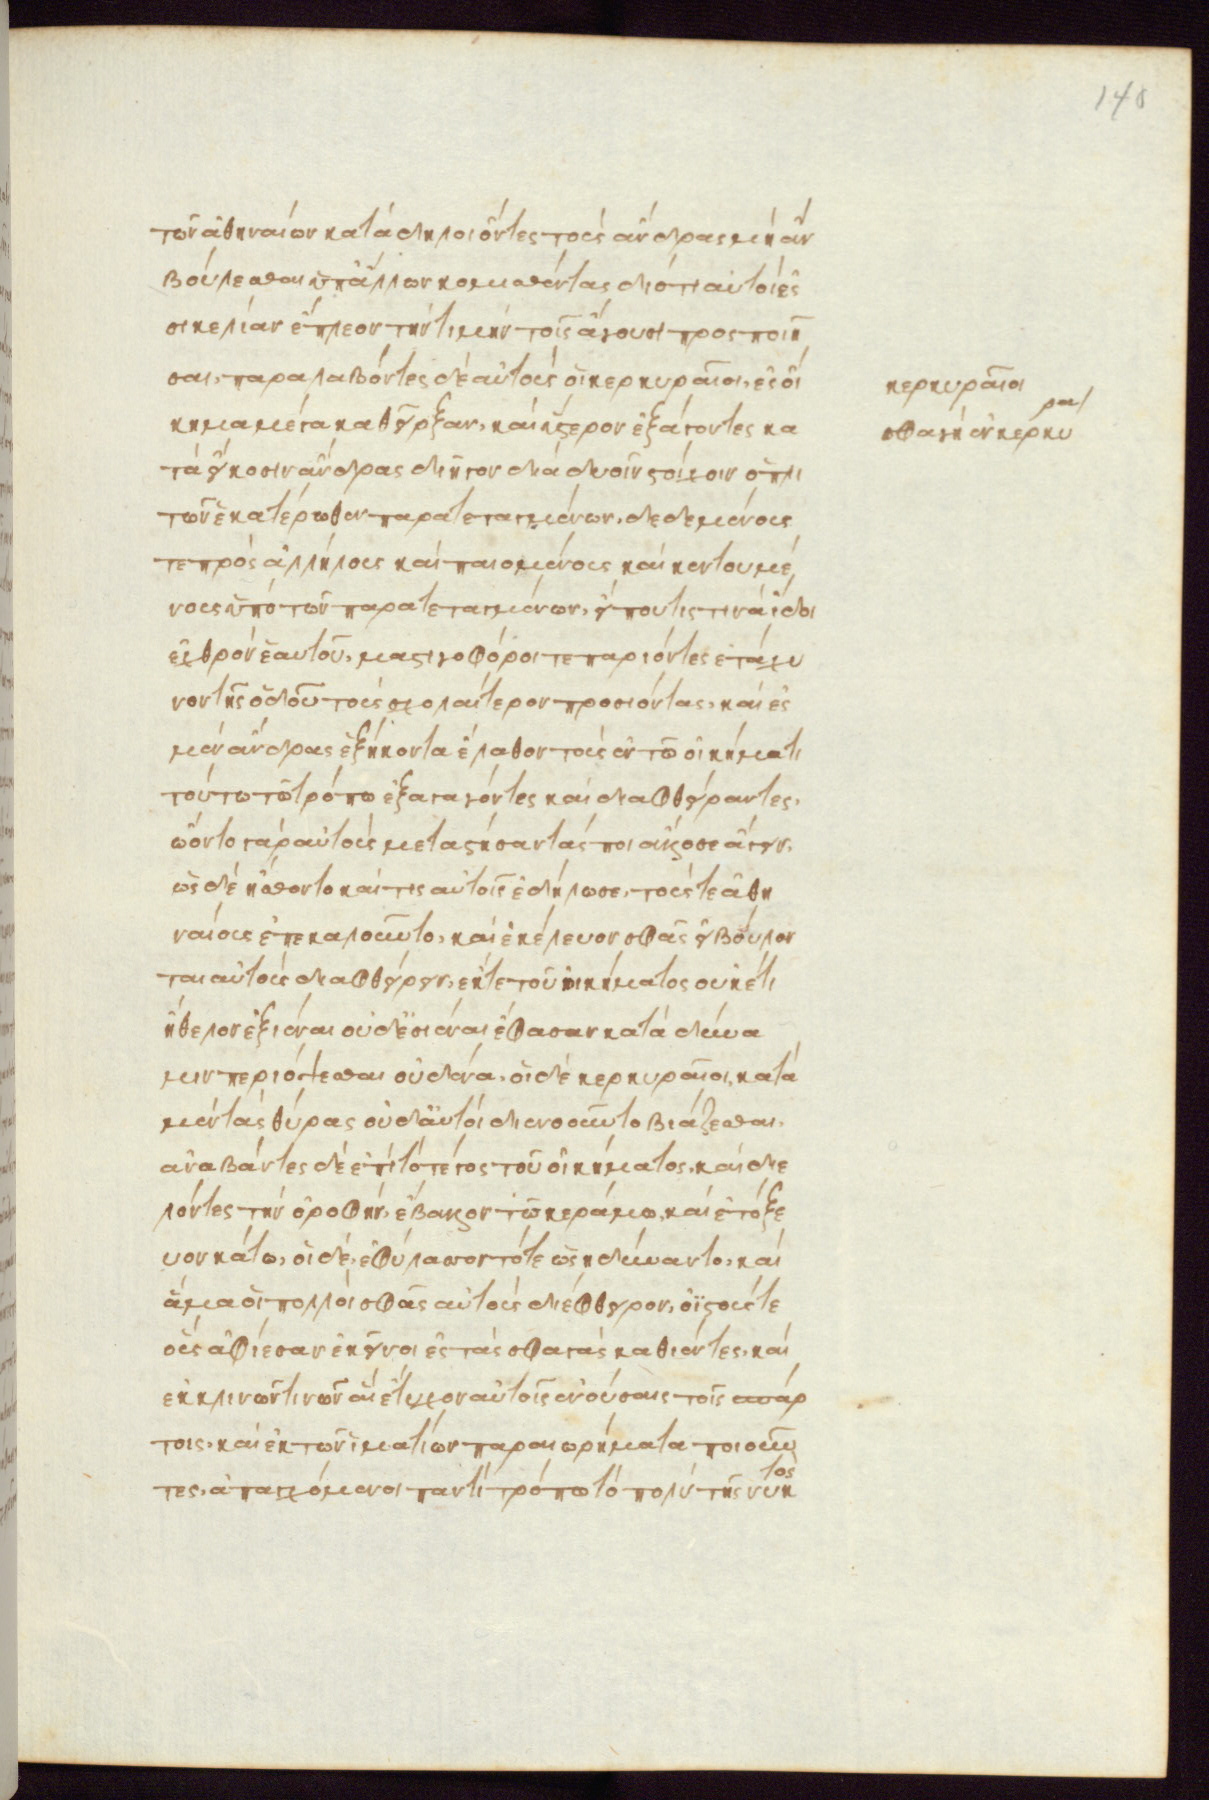 148
τῶν ἀθηναίων κατάδηλοι ὄντες τοὺς ἄνδρας μὴ ἂν
βούλεσθαι ὑπ' ἄλλων κομισθέντας διότι αὐτοὶ ἐς
σικελίαν ἔπλεον τὴν τιμὴν τοῖς ἄγουσι προσποιῆ
σαι, παραλαβόντες δὲ αὐτοὺς οἱ κερκυραῖοι, ἐς οἴ
κημα μέγα καθεῖρξαν, καὶ ὕστερον ἐξάγοντες κα
τὰ εἴκοσιν ἄνδρας διῆγον διὰ δυοῖν στοίχοιν ὁπλι
τῶν ἑκατέρωθεν παρατεταγμένων, δεδεμένους
τε πρὸς ἀλλήλους καὶ παιομένους καὶ κεντουμέ
νους ὑπὸ τῶν παρατεταγμένων, εἴ που τίς τινα ἴδοι
ἐχθρὸν ἑαυτοῦ, μαστιγοφόροι τε παριόντες ἐτάχυ
νον τῆς ὁδοῦ τοὺς σχολαίτερον προσιόντας, καὶ ἐς
μὲν ἄνδρας ἑξήκοντα ἔλαθον τοὺς ἐν τῷ οἰκήματι
τούτῳ τῷ τρόπῳ ἐξαγαγόντες καὶ διαφθείραντες,
ᾤοντο γὰρ αὐτοὺς μεταστήσαντάς ποι ἄλλοσε ἄγειν,
ὡς δὲ ᾔσθοντο καί τις αὐτοῖς ἐδήλωσε, τούς τε ἀθη
ναίους ἐπεκαλοῦντο, καὶ ἐκέλευον σφᾶς εἰ βούλον
ται αὐτοὺς διαφθείρειν, ἔκ τε τοῦ οἰκήματος οὐκέτι
ἤθελον ἐξιέναι οὐδ' ἐσιέναι ἔφασαν κατὰ δύνα
μιν περιόψεσθαι οὐδένα, οἱ δὲ κερκυραῖοι, κατὰ
μὲν τὰς θύρας οὐδ' αὐτοὶ διενοοῦντο βιάζεσθαι,
ἀναβάντες δὲ ἐπὶ τὸ τέγος τοῦ οἰκήματος, καὶ διε
λόντες τὴν ὀροφήν, ἔβαλλον τῷ κεράμῳ, καὶ ἐτόξε
υον κάτω, οἱ δὲ, ἐφυλάσσοντό τε ὡς ἠδύναντο, καὶ
ἅμα οἱ πολλοὶ σφᾶς αὐτοὺς διέφθειρον, οἰστούς τε
οὓς ἀφίεσαν ἐκεῖνοι ἐς τὰς σφαγὰς καθιέντες, καὶ
ἐκ κλινῶν τινῶν αἳ ἔτυχον αὐτοῖς ἐνοῦσαι τοῖς σπάρ
τοις, καὶ ἐκ τῶν ἱματίων παραιωρήματα ποιοῦν
τες, ἀπαγχόμενοι παντὶ τρόπῳ τὸ πολὺ τῆς νυκτὸς
κερκυραῖοι
σφαγὴ ἐν κερκυραι